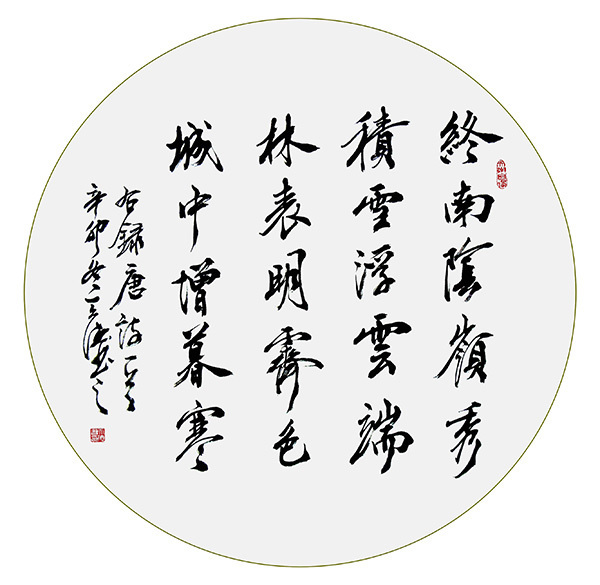 終南陰嶺秀
積雪浮雲端
林表明霽色
城中增暮寒
右錄唐詩一首
辛卯冬